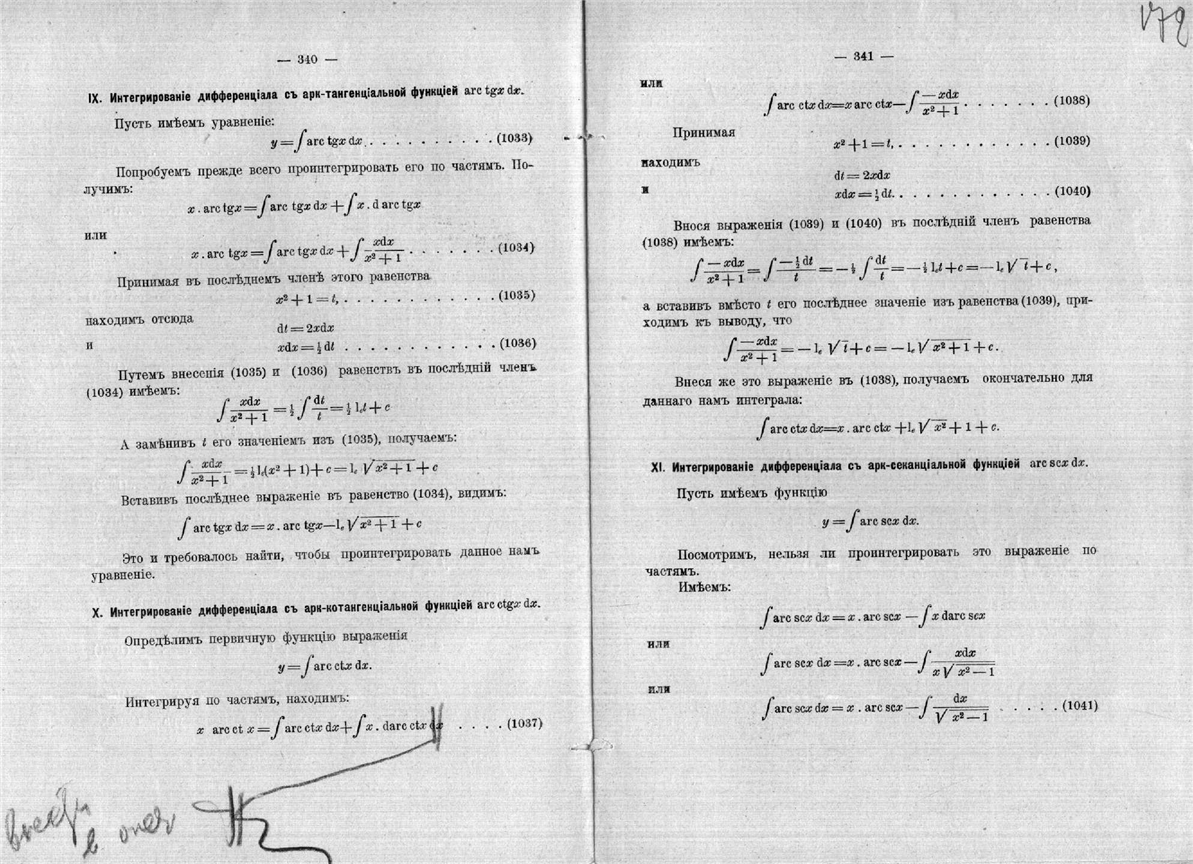 — 340 —
IX. Интегрированіе дифференціала съ арк-тангенціальной функціей arc tgx dx.
Пусть имѣемъ уравненіе:
y = ∫ arc tgx dx. . . . . . . . . . . (1033)
Попробуемъ прежде всего проинтегрировать его по частямъ. По-
лучимъ:
x . arc tgx = ∫ arc tgx dx + ∫ x . d arc tgx
или
x . arc tgx = ∫ arc tgx dx + ∫ xdx/x²+1 . . . . . . . (1034)
Принимая въ послѣднемъ членѣ этого равенства
x² + 1 = t, . . . . . . . . . . . . (1035)
находимъ отсюда
dt = 2xdx
и
xdx = ½ dt . . . . . . . . . . . . (1036)
Путемъ внесенія (1035) и (1036) равенствъ въ послѣдній членъ
(1034) имѣемъ:
∫ xdx/x²+1 = ½ ∫ dt/t = ½ lₑt + c
А замѣнивъ t его значеніемъ изъ (1035), получаемъ:
∫ xdx/x²+1 = ½ lₑ(x² + 1) + c = lₑ √x² + 1 + c
Вставивъ послѣднее выраженіе въ равенство (1034), видимъ:
∫ arc tgx dx = x . arc tgx — lₑ √x² + 1 + c
Это и требовалось найти, чтобы проинтегрировать данное намъ
уравненіе.
X. Интегрированіе дифференціала съ арк-котангенціальной функціей arc ctgx dx.
Опредѣлимъ первичную функцію выраженія
y = ∫ arc ctx dx.
Интегрируя по частямъ, находимъ:
x arc ct x = ∫ arc ctx dx + ∫ x . darc ctx dx . . . . (1037)
в
— 341 —
или
∫ arc ctx dx = x arc ctx — ∫ —xdx/x²+1 . . . . . . . (1038)
Принимая
x² + 1 = t, . . . . . . . . . . . . (1039)
находимъ
dt = 2xdx
и
xdx = ½ dt. . . . . . . . . . . . (1040)
Внося выраженія (1039) и (1040) въ послѣдній членъ равенства
(1038) имѣемъ:
∫ —xdx/x²+1 = ∫ —½ dt/t = — ½ ∫ dt/t = — ½ lₑt + c = — lₑ √t + c,
а вставивъ вмѣсто t его послѣднее значеніе изъ равенства (1039), при-
ходимъ къ выводу, что
∫ —xdx/x²+1 = — lₑ √t + c = — lₑ √x² + 1 + c.
Внеся же это выраженіе въ (1038), получаемъ окончательно для
даннаго намъ интеграла:
∫ arc ctx dx = x . arc ctx + lₑ √x² + 1 + c.
XI. Интегрированіе дифференціала съ арк-секанціальной функціей arc scx dx.
Пусть имѣемъ функцію
y = ∫ arc scx dx.
Посмотримъ, нельзя ли проинтегрировать это выраженіе по
частямъ.
Имѣемъ:
∫ arc scx dx = x . arc scx — ∫ x darc scx
или
∫ arc scx dx = x . arc scx — ∫ xdx/x √x² — 1
или
∫ arc scx dx = x . arc scx — ∫ dx/√x² — 1 . . . . . (1041)